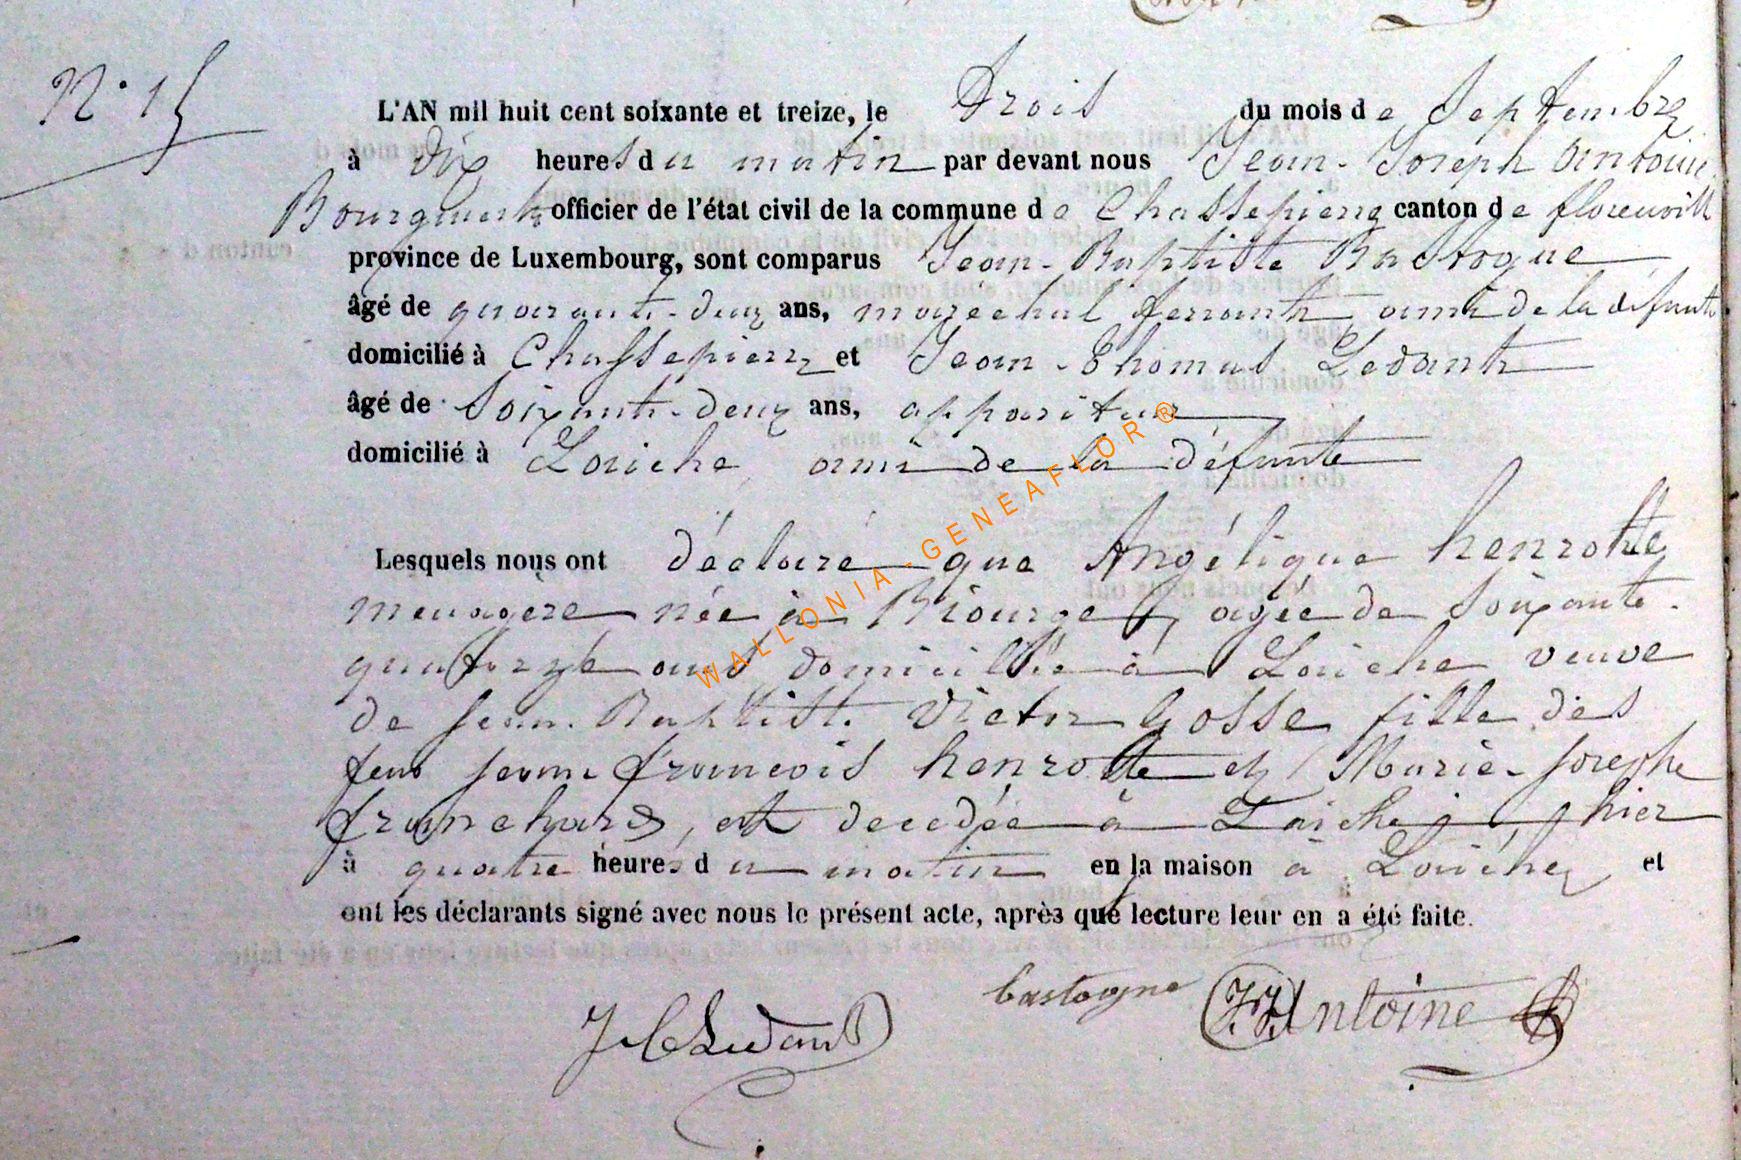 N° 15
L'AN mil huit cent soixante et treize, le Trois du mois de Septembre
à dix heures du matin par devant nous Jean-Joseph Antoine
Bourgmestre officier de l'état civil de la commune de Chassepierre canton de florenville
province de Luxembourg, sont comparus Jean-Baptiste Bastogne
âgé de quarante-deux ans, maréchal ferrant ami de la défunte
domicilié à Chassepierre et Jean-Thomas Ledant
âgé de Soixante-deux ans, appariteur
domicilié à Laiche ami de la défunte
Lesquels nous ont déclaré que Angélique henrotte
menagère née à Biourge, agée de Soixante-
quatorze ans domiciliée à Laiche veuve
de Jean-Baptiste Victor Gosse fille des
feus Jean françois henrotte et Marie-Josephe
franchard, est decedée à Laiche hier
à quatre heures du matin en la maison à Laiche et
ont les déclarants signé avec nous le présent acte, après que lecture leur en a été faite.
bastogne J.J. Antoine
JTLedant
WALLONIA-GENEAFLOR®